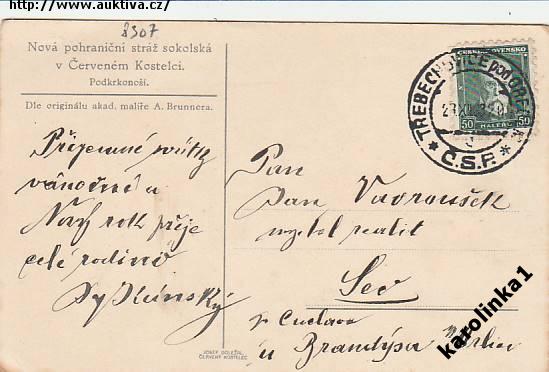 http://www.auktiva.cz/
8307
Nová pohraniční stráž sokolská
v Červeném Kostelci.
Podkrkonoší.
Dle originálu akad. malíře A. Brunnera.
Příjemné svátky
vánoční a
Nový rok přeje
celé rodině
ČESKOSLOVENSKO
50 HALÉŘŮ 50
TŘEBECHOVICE pod OREBEM
* Č.S.P. *
Pan
Jan Vavroušek
majitel realit
u Brandýsa
JOSEF DOLEŽAL
ČERVENÝ KOSTELEC
karolinka1